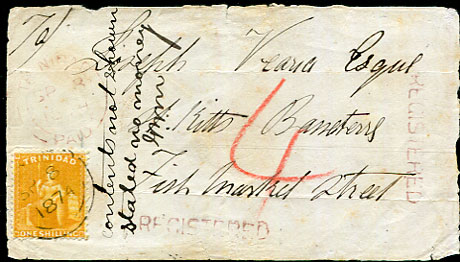 To/
Joseph Vearia Esqre
St. Kitts Basseterre
Fish market Street
contents not known
stated no money
4
REGISTERED
REGISTERED
TRINIDAD
8
1874
ONE SHILLING